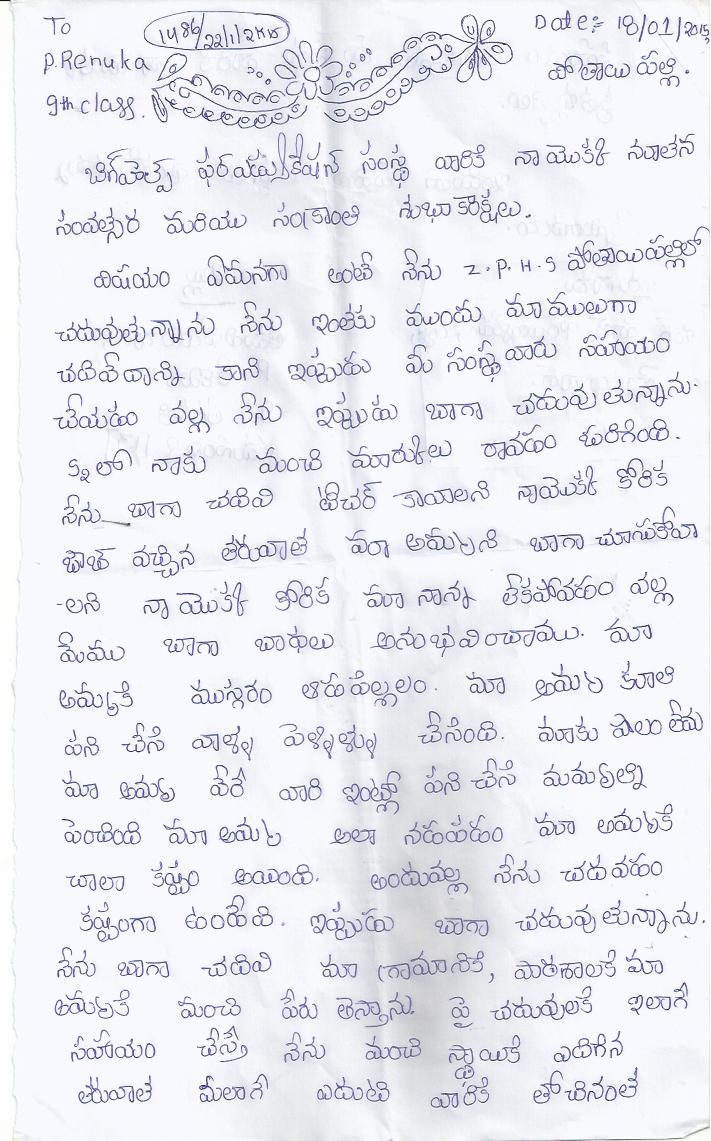 To
1486/22/1/2K15
Date:- 18/01/2015
P.Renuka
పోతాయిపల్లి.
9th class.
బిగ్‌హెల్ప్ ఫర్ఎడ్యుకేషన్ సంస్థ వారికి నాయొక్క నూతన
సంవత్సర మరియు సంక్రాంతి శుభాకాంక్షలు.
విషయం ఏమనగా అంటే నేను Z.P.H.S పోతాయిపల్లిలో
చదువుతున్నాను నేను ఇంతకు ముందు మామూలుగా
చదివేదాన్ని కాని ఇప్పుడు మీ సంస్థవారు సహాయం
చేయడం వల్ల నేను ఇప్పుడు బాగా చదువుతున్నాను.
లో నాకు మంచి మార్కులు రావడం జరిగింది.
నేను బాగా చదివి టీచర్ కావాలని నాయొక్క కోరిక
జాబ్ వచ్చిన తరువాత మా అమ్మని బాగా చూసుకోవా
-లని నా యొక్క కోరిక మా నాన్న లేకపోవడం వల్ల
మేము బాగా బాధలు అనుభవించాము. మా
అమ్మకి ముగ్గురం ఆడపిల్లలం. మా అమ్మ కూలి
పని చేసి వాళ్ళ పెళ్ళిళ్ళు చేసింది. మాకు పొలం లేదు
మా అమ్మ వేరే వారి ఇంట్లో పని చేసి మమ్మల్ని
పెంచింది మా అమ్మ అలా నడపడం మా అమ్మకి
చాలా కష్టం అయింది. అందువల్ల నేను చదవడం
కష్టంగా ఉండేది. ఇప్పుడు బాగా చదువుతున్నాను.
నేను బాగా చదివి మా గ్రామానికి, పాఠశాలకి మా
అమ్మకి మంచి పేరు తెస్తాను. పై చదువులకి ఇలాగే
సహాయం చేస్తే నేను మంచి స్థాయికి ఎదిగిన
తరువాత మీలాగే ఎదుటి వారికి తోచినంత